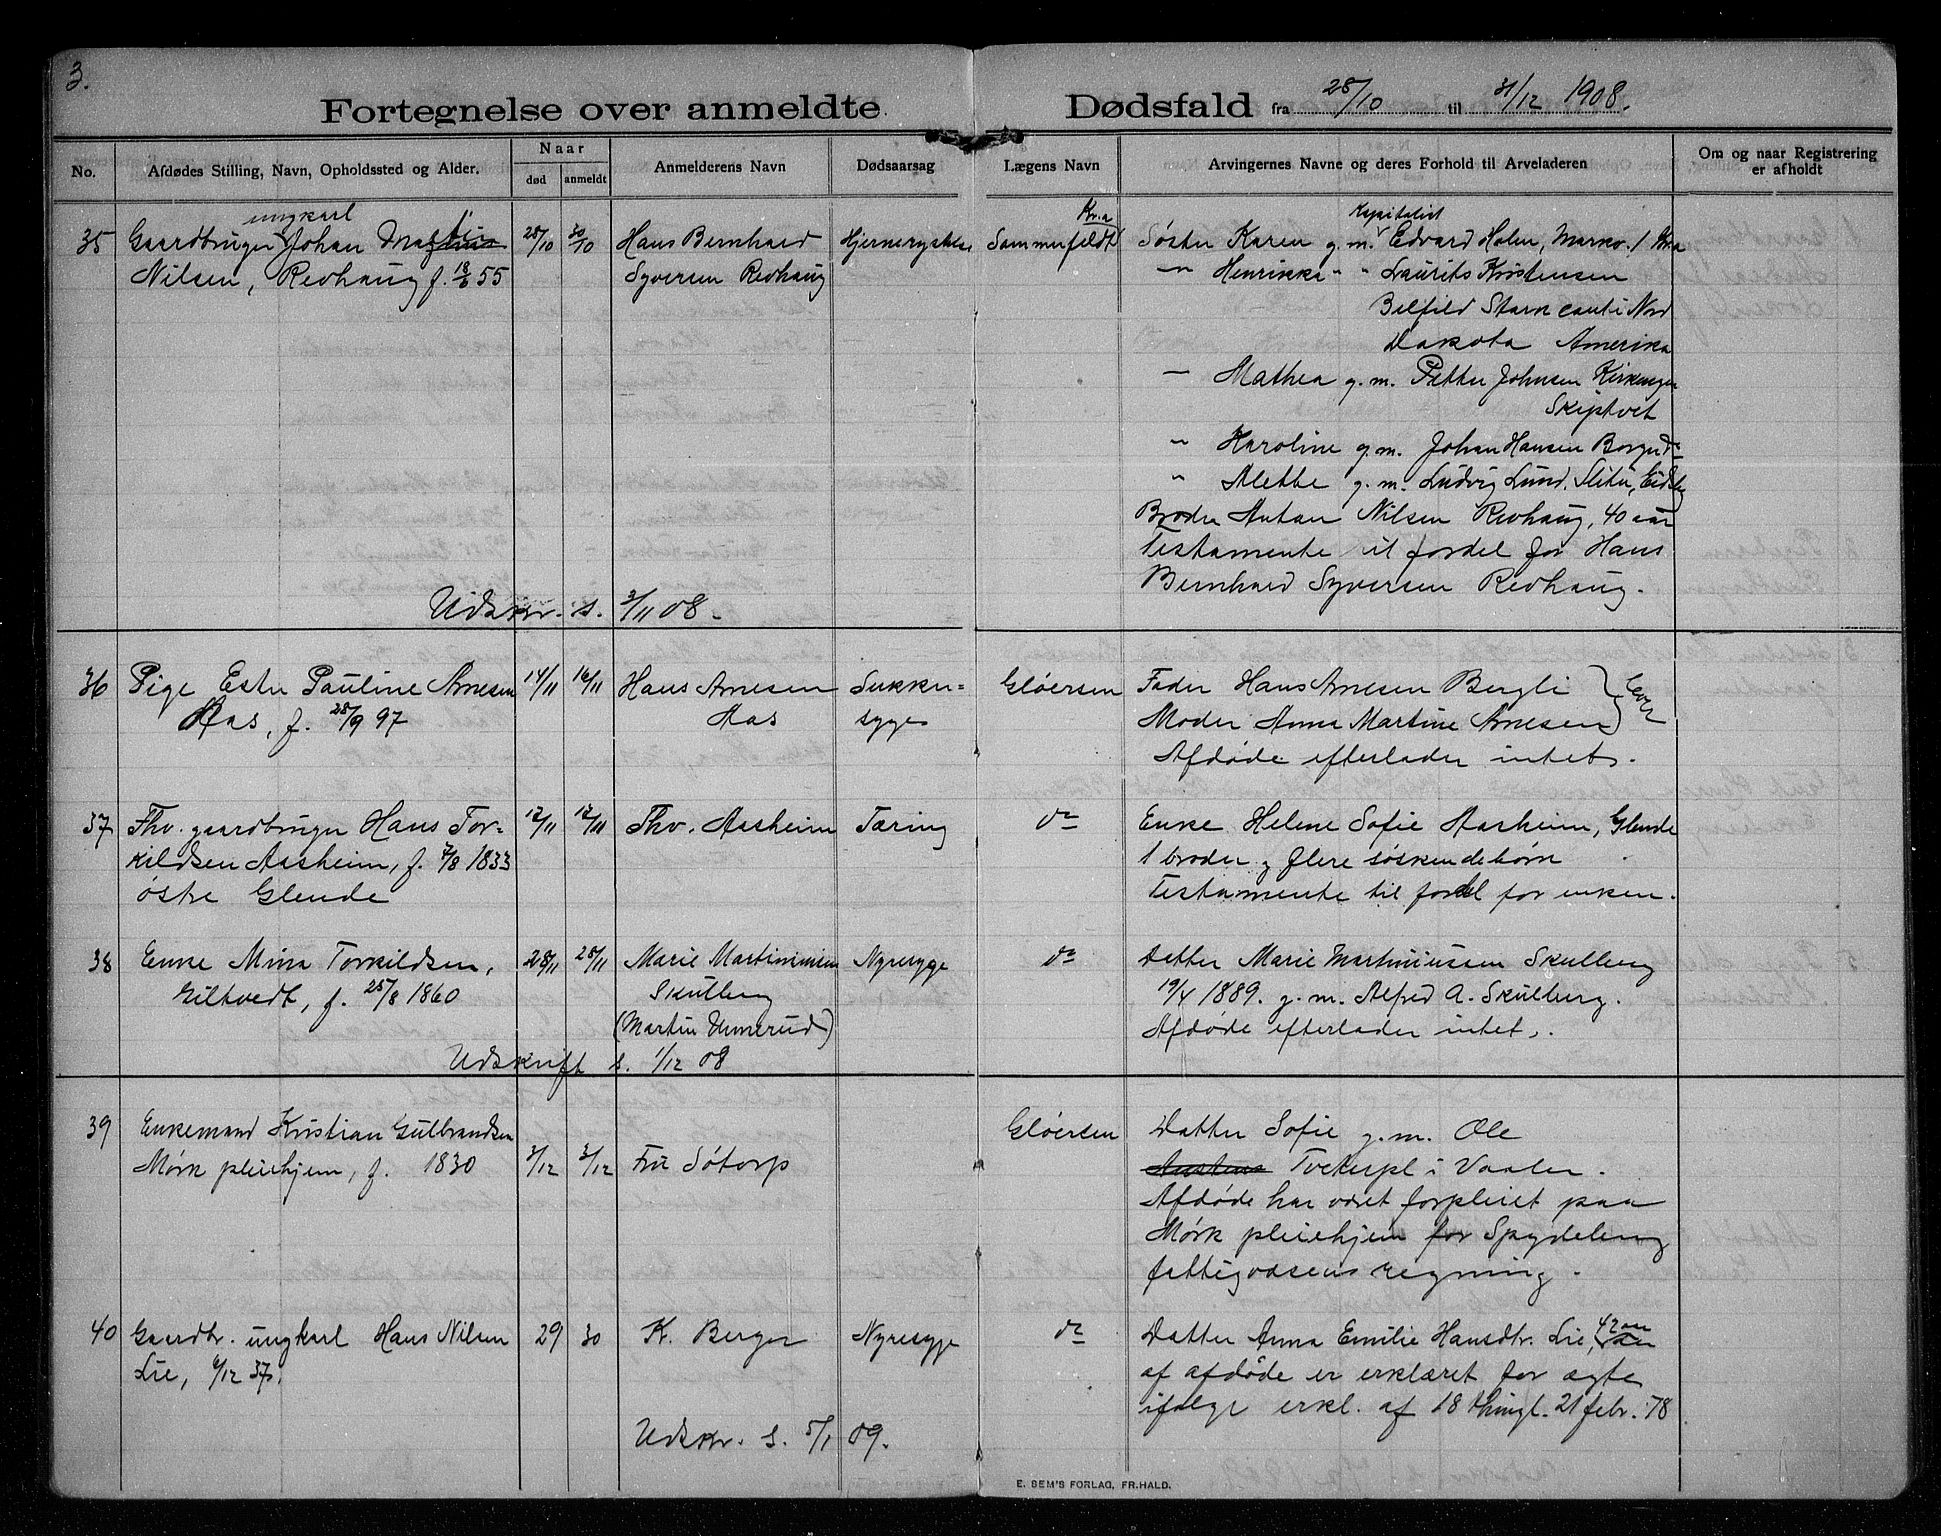 3.
Fortegnelse over anmeldte Dødsfald fra 28/10 til 31/12 1908.
No. Afdødes Stilling, Navn, Opholdssted og Alder. Naar død anmeldt Anmelderens Navn Dødsaarsag Lægens Navn Arvingernes Navne og deres Forhold til Arveladeren Om og naar Registrering er afholdt
ungkarl Kr.a Kapitalist
35 Gaardbruger Johan 28/10 30/10 Hans Bernhard Hjernerystelse Sommerfeldt Søster Karen g.m. Edvard Holm,
Nilsen, Revhaug f. 55 Syversen Revhaug — Henrikka " " Laurits Kristensen
Belfild Stark canti Nord
Dakota Amerika
— Mathea g.m. Petter Johnsen
Skiptvet
" Karoline g.m. Johan Hansen
" Alette g.m. Ludvig Lund,
Broder Anton Nilsen Revhaug, 40 aar
Testamente til fordel for Hans
Bernhard Syversen Revhaug.
Udskr. s. 3/11 08.
36 Pige Ester Pauline Arnesen 14/11 16/11 Hans Arnesen Sukker= Gløersen Fader Hans Arnesen Bergli
Aas, f. 28/9 97 Aas syge Moder Anna Martine Arnesen
Afdøde efterlader intet.
37 Fhv. gaardbruger Hans Tor= 12/11 17/11 Fhv. Aasheim Tæring do Enke Helene Sofie Aasheim, Glende
kildsen Aasheim, f. 7/8 1833 1 broder og flere søskendebørn
østre Glende Testamente til fordel for enken.
38 Enke Mina Torkildsen, 28/11 28/11 Marie Martiniusen Nyresyge do Datter Marie Martiniusen Skulberg
Giltvedt, f. 25/8 1860 Skulberg 19/4 1889. g.m. Alfred A. Skulberg.
(Martin Unnerud) Afdøde efterlader intet.
Udskrift s. 1/12 08
39 Enkemand Kristian Gulbrandsen Gløersen Datter Sofie g.m. Ole
Mørk pleiehjem, f. 1830 3/12 3/12 Fru Søtorp i Vaaler.
Afdøde har været forpleiet paa
Mørk pleiehjem for Spydeberg
fattigvæsens regning.
40 Gaardbr. ungkarl Hans Nilsen 29 30 K. Berger Nyresyge do Datter Anna Emilie Hansdtr. Lie, 42 aar
Lie, 6/12 37. af afdøde er erklæret for ægte
ifølge erkl. af 18 thingl. 21 febr. 78
Udskr. s. 5/1 09.
E. SEM'S FORLAG, FR.HALD.